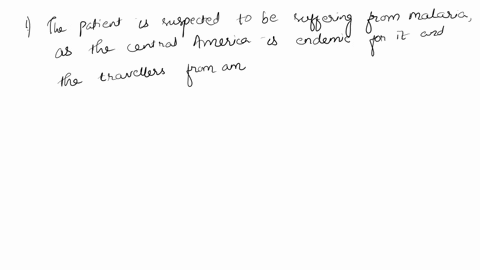 1) The patient is suspected to be suffering from malaria,
as the central America is endemic for it and
the travellers from am